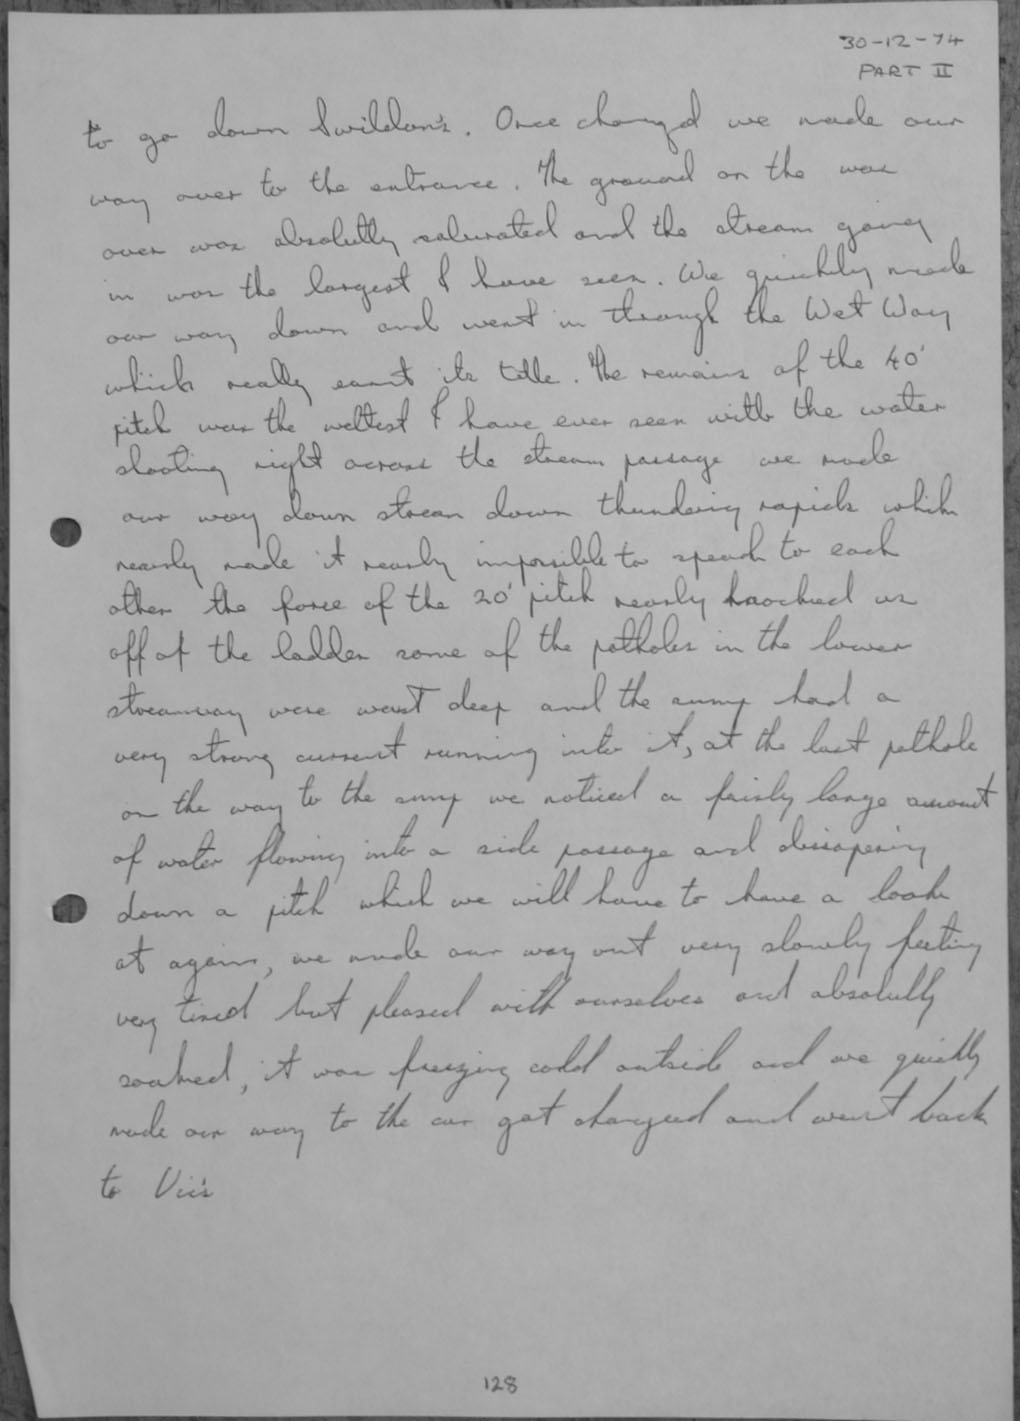 30-12-74
PART II
to go down Swildon's. Once changed we made our
way over to the entrance. The ground on the way
over was absolutly saturated and the stream going
in was the largest I have seen. We quickly made
our way down and went in through the Wet Way
which really earnt its title. The remains of the 40'
pitch was the wettest I have ever seen with the water
shooting right across the stream passage we made
our way down stream down thundering rapids which
nearly made it nearly impossible to speak to each
other the force of the 20' pitch nearly knocked us
off of the ladder some of the potholes in the lower
streamway were waist deep and the sump had a
very strong current running into it, at the last pothole
on the way to the sump we noticed a fairly large amount
of water flowing into a side passage and dissapering
down a pitch which we will have to have a look
at again, we made our way out very slowly feeling
very tired but pleased with ourselves and absolutly
soaked, it was freezing cold outside and we quickly
made our way to the car got changed and went back
to Vic's
128